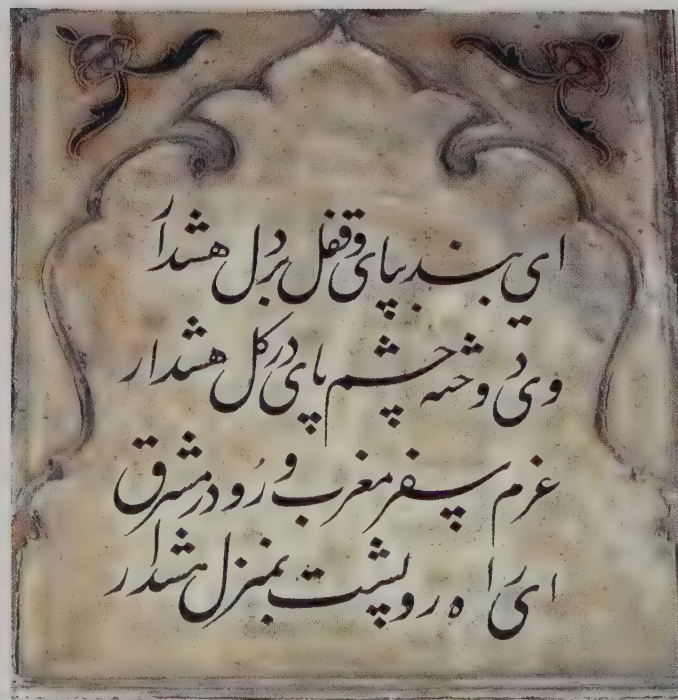 ای بند بپای و قفل بر دل هشدار
وی دوخته چشم پای در گل هشدار
عزم سفر مغرب و رو در مشرق
ای راه رو پشت بمنزل هشدار